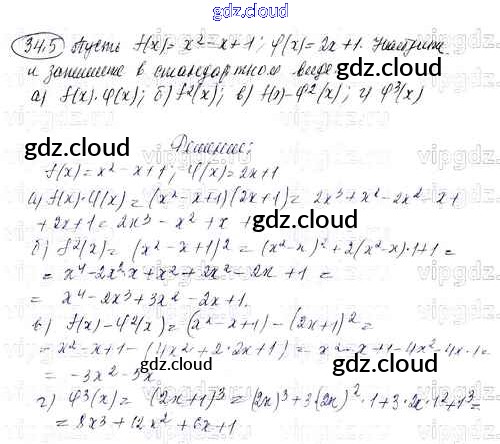 gdz.cloud
34.5 Пусть f(x) = x² - x + 1; φ(x) = 2x + 1. Найдите
и запишите в стандартном виде
а) f(x)·φ(x); б) f²(x); в) f(x) - φ²(x); г) φ³(x)
Решение:
f(x) = x² - x + 1; φ(x) = 2x + 1
а) f(x)·φ(x) = (x² - x + 1)(2x + 1) = 2x³ + x² - 2x² - x +
+ 2x + 1 = 2x³ - x² + x +
б) f²(x) = (x² - x + 1)² = (x² - x)² + 2(x² - x)·1 + 1 =
= x⁴ - 2x²·x + x² + 2x² - 2x + 1 =
= x⁴ - 2x³ + 3x² - 2x + 1.
в) f(x) - φ²(x) = (x² - x + 1) - (2x + 1)² =
= x² - x + 1 - (4x² + 2·2x + 1) = x² - x + 1 - 4x² - 4x - 1 =
= -3x² - 5x
г) φ³(x) = (2x + 1)³ = (2x)³ + 3·(2x)²·1 + 3·2x·1² + 1³ =
= 8x³ + 12x² + 6x + 1